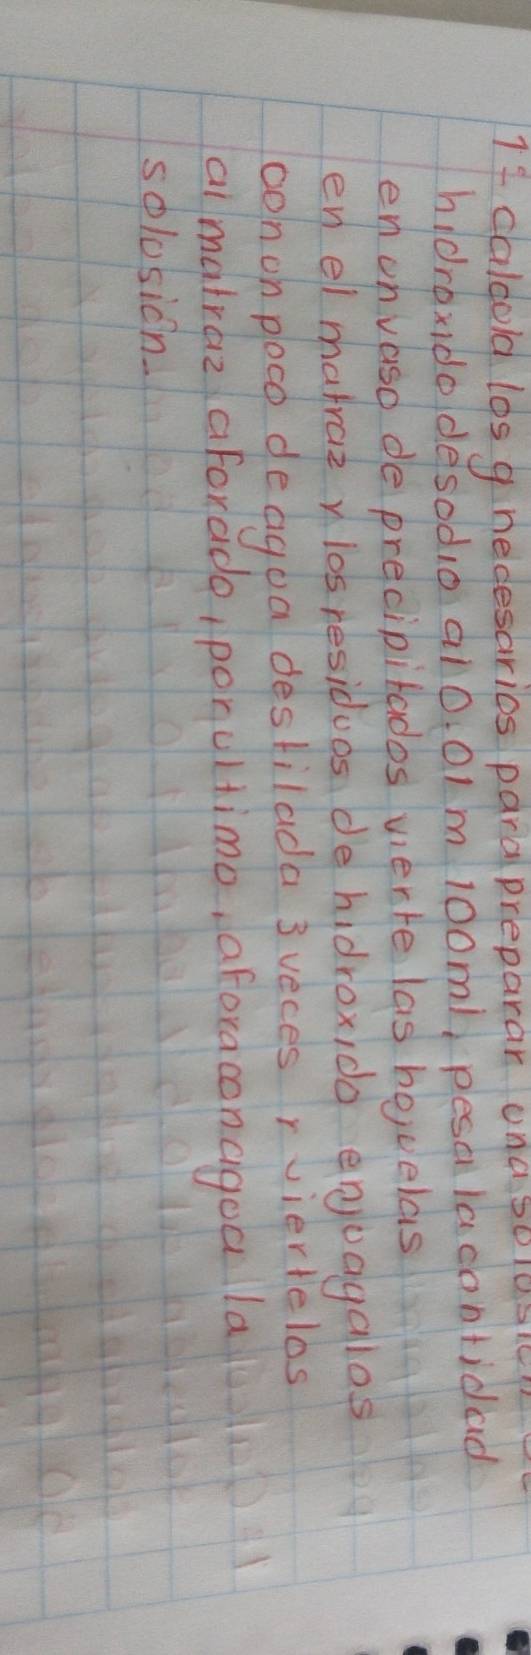 1°- calcula los g necesarios para preparar una solusión de
hidroxido de sodio al 0.01 m 100ml, pesa la cantidad
en un vaso de precipitados vierte las hojuelas
en el matraz y los residuos de hidroxido enjuagalos
con un poco de agua destilada 3 veces y viertelos
al matraz aforado, por ultimo, afora con agua la
solusión.